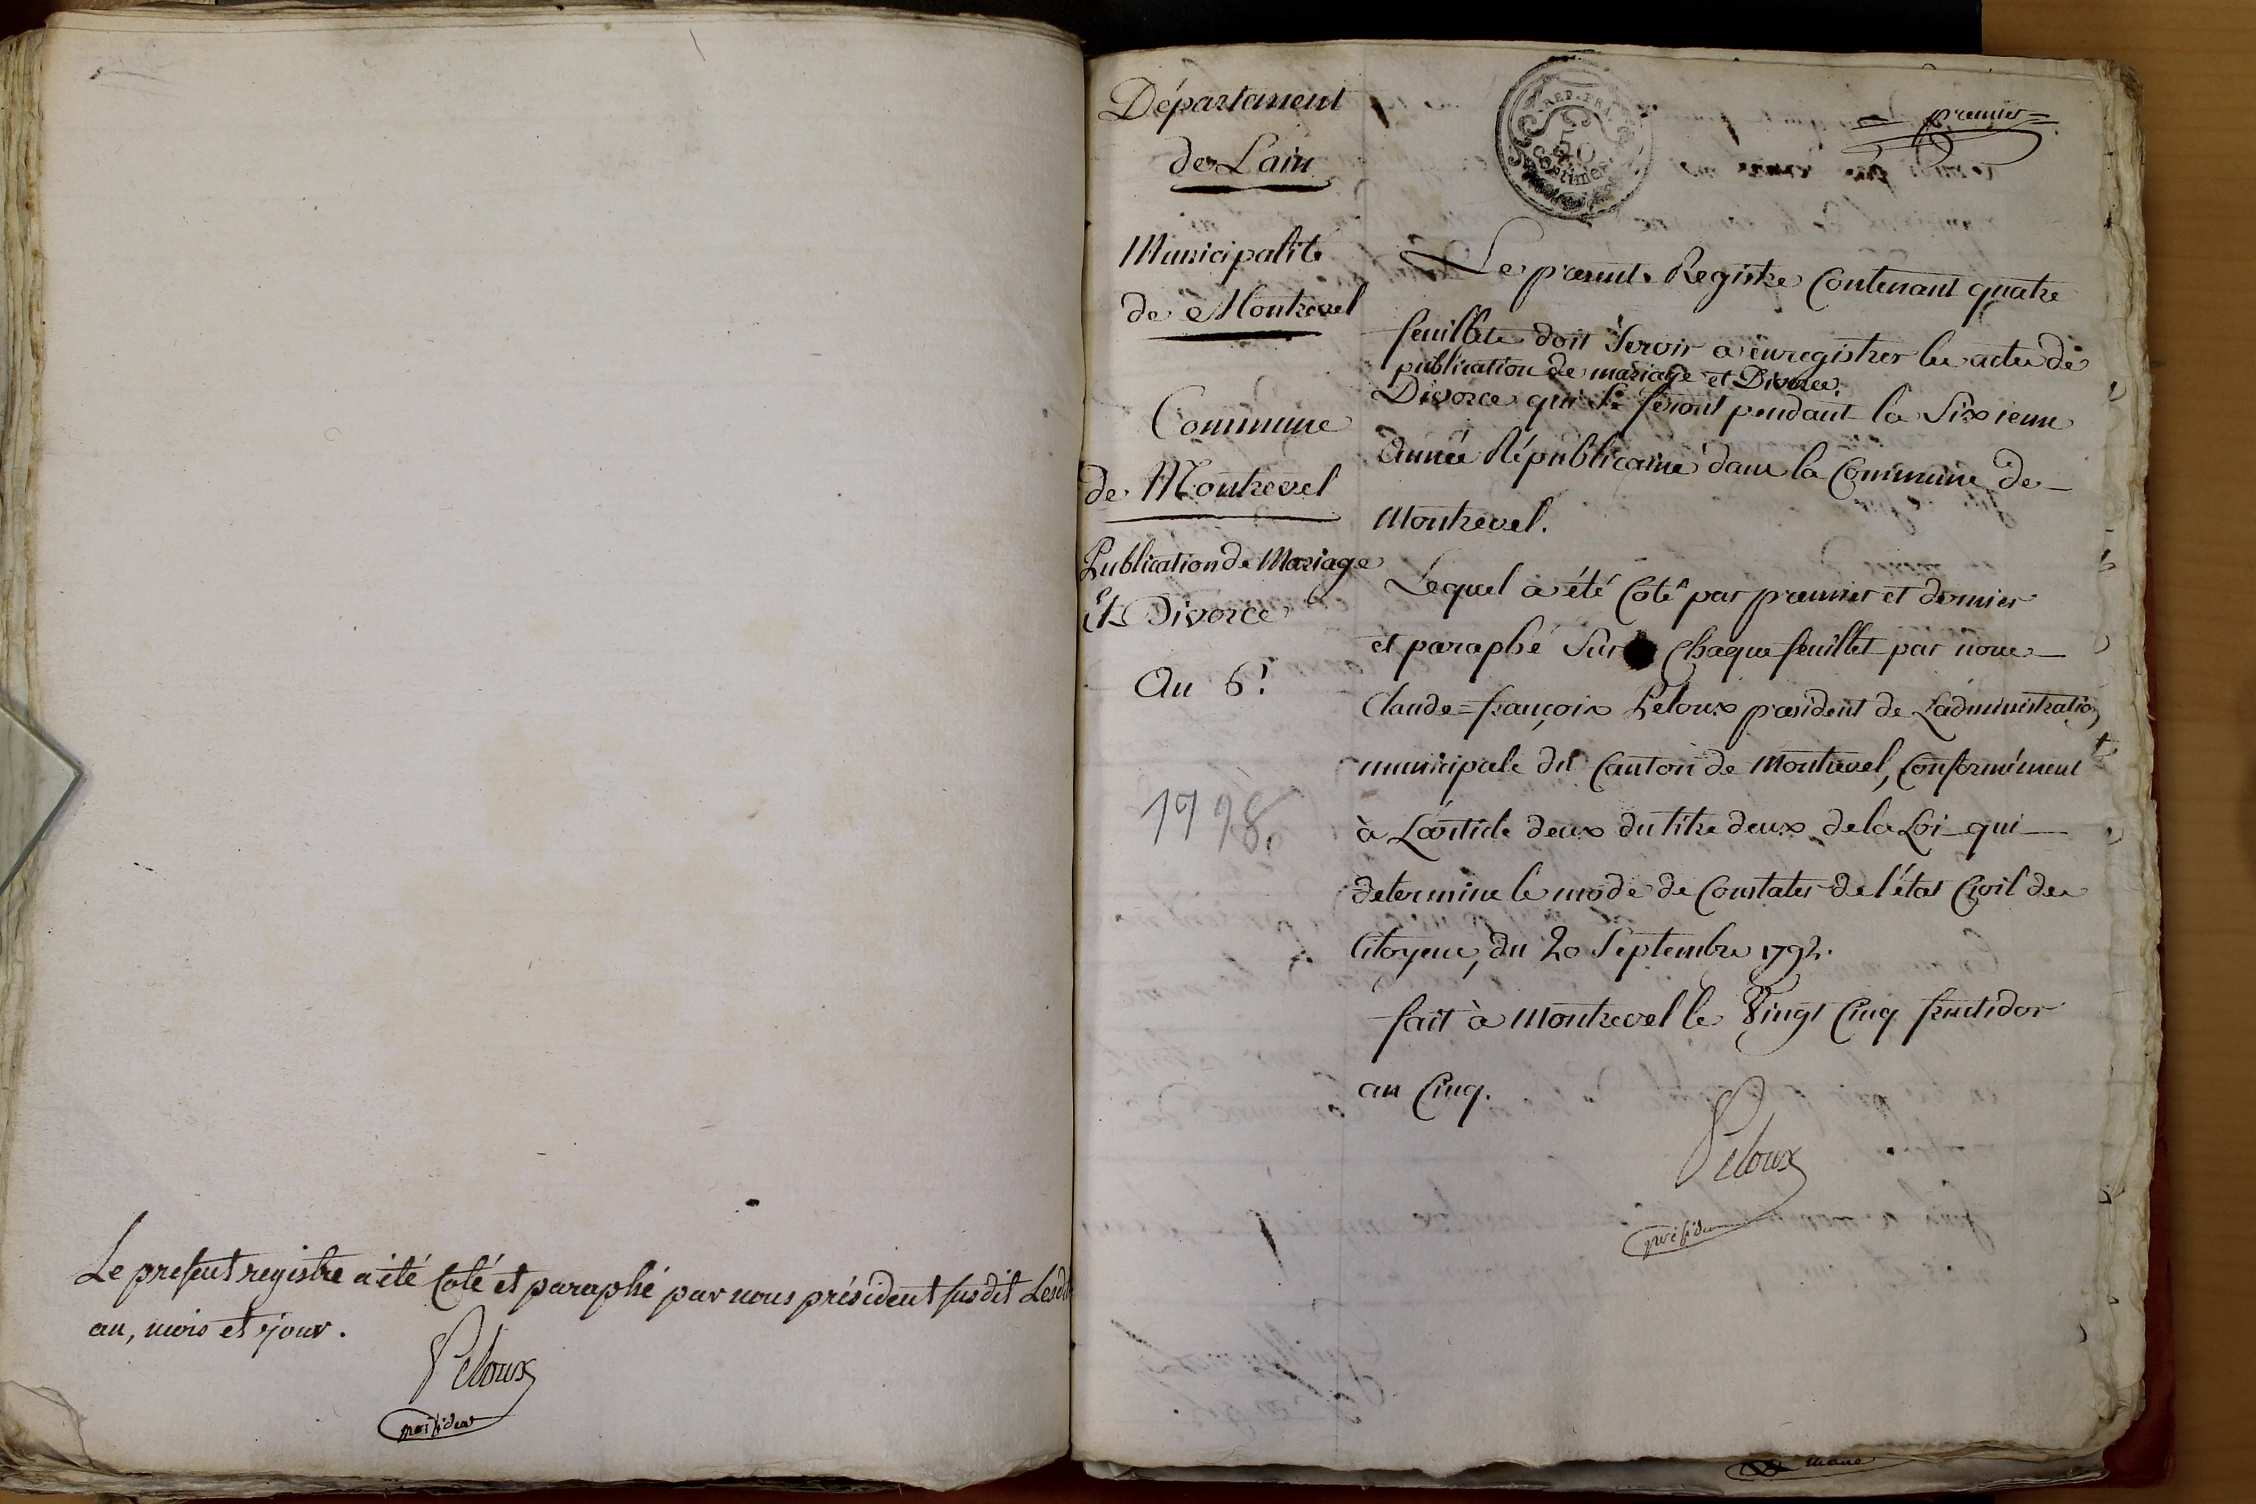 Le present registre a été Coté et paraphé par nous président susdit Lesd
an, mois et jour.
Peloux
président
Département
de Lain
Municipalité
de Montrevel
Commune
de Montrevel
Publication de Mariage
Et Divorce
An 6.
1798.
REP. FRA
50
centimes
premier
Le présent Registre Contenant quatre
feuillets doit servir a enregistrer les actes de
publication de mariage et Divorce
Divorce qui se feront pendant la Sixieme
année Républicaine dans la Commune de
Montrevel.
Lequel a été Coté par premier et dernier
et paraphé sur chaque feuillet par nous
Claude=françois Peloux président de L'administration
municipale du Canton de Montrevel, Conformément
à L'article deux du titre deux de la Loi qui
determine le mode de Constater de l'état Civil des
Citoyens, du 20 Septembre 1792.
fait à Montrevel le Vingt Cinq fructidor
an Cinq.
Peloux
président